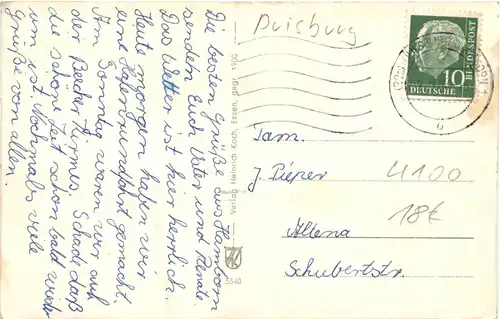 Die besten Grüße aus Hamborn
senden Euch Vater und Renate.
Das Wetter ist hier herrlich.
Heute morgen haben wir
eine Hafenrundfahrt gemacht.
Am Sonntag waren wir auf
der Beecker Kirmes. Schade daß
die schöne Zeit schon bald wieder
um ist. Nochmals viele
Grüße von allen.
Verlag Heinrich Koch, Essen, gegr. 1900
5340
Duisburg
10
DEUTSCHE
BUNDESPOST
Fam.
J. Pieper
Altena
Schubertstr.
4100
18€